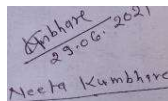 Kmbhare
29.06.2021
Neeta Kumbhare